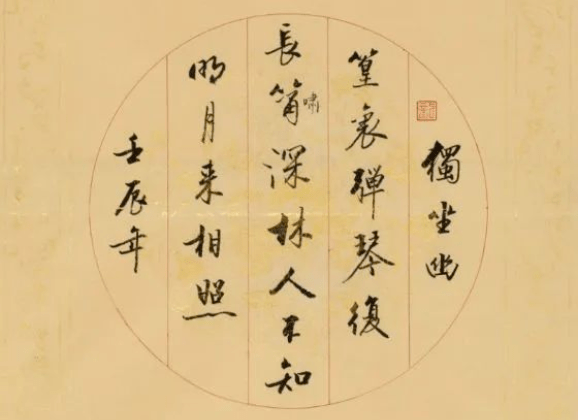 獨坐幽
篁裏彈琴復
長嘯深林人不知
明月来相照
壬辰年